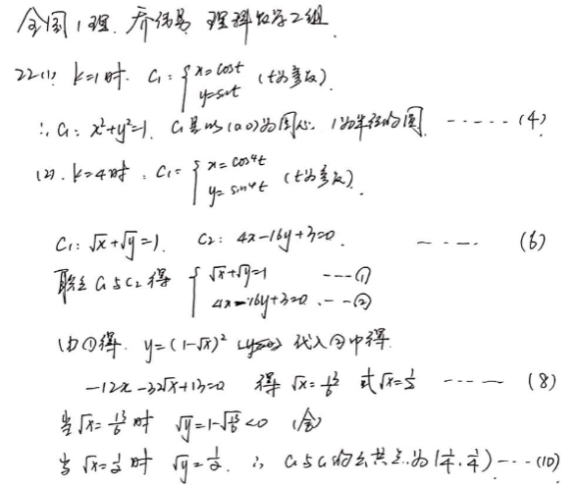 全国1理. 乔伟易 理科数学2组.
22(1) k=1时. C₁: { x=cost y=sint (t为参数).
∴ C₁: x²+y²=1. C₁是以(0,0)为圆心. 1为半径的圆. ------ (4)
(2). k=4时. C₁: { x=cos⁴t y=sin⁴t (t为参数).
C₁: √x+√y=1. C₂: 4x-16y+3=0. ---- (6)
联立C₁与C₂得 { √x+√y=1 ---① 4x-16y+3=0 ---②
由①得. y=(1-√x)² 代入②中得.
-12x-32√x+13=0 得 √x=13/6 或√x=1/2 ------ (8)
当√x=13/6时 √y=1-√13/6<0 (舍)
当√x=1/2时 √y=1/2. ∴ C₁与C₂的公共点为(1/4, 1/4) --- (10)